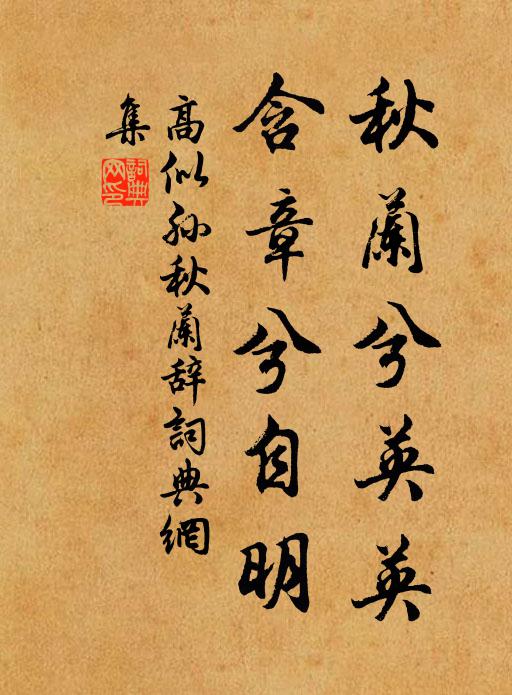 秋蘭兮英英
含章兮自明
高似孫秋蘭辞詞典網
集
詞典網印